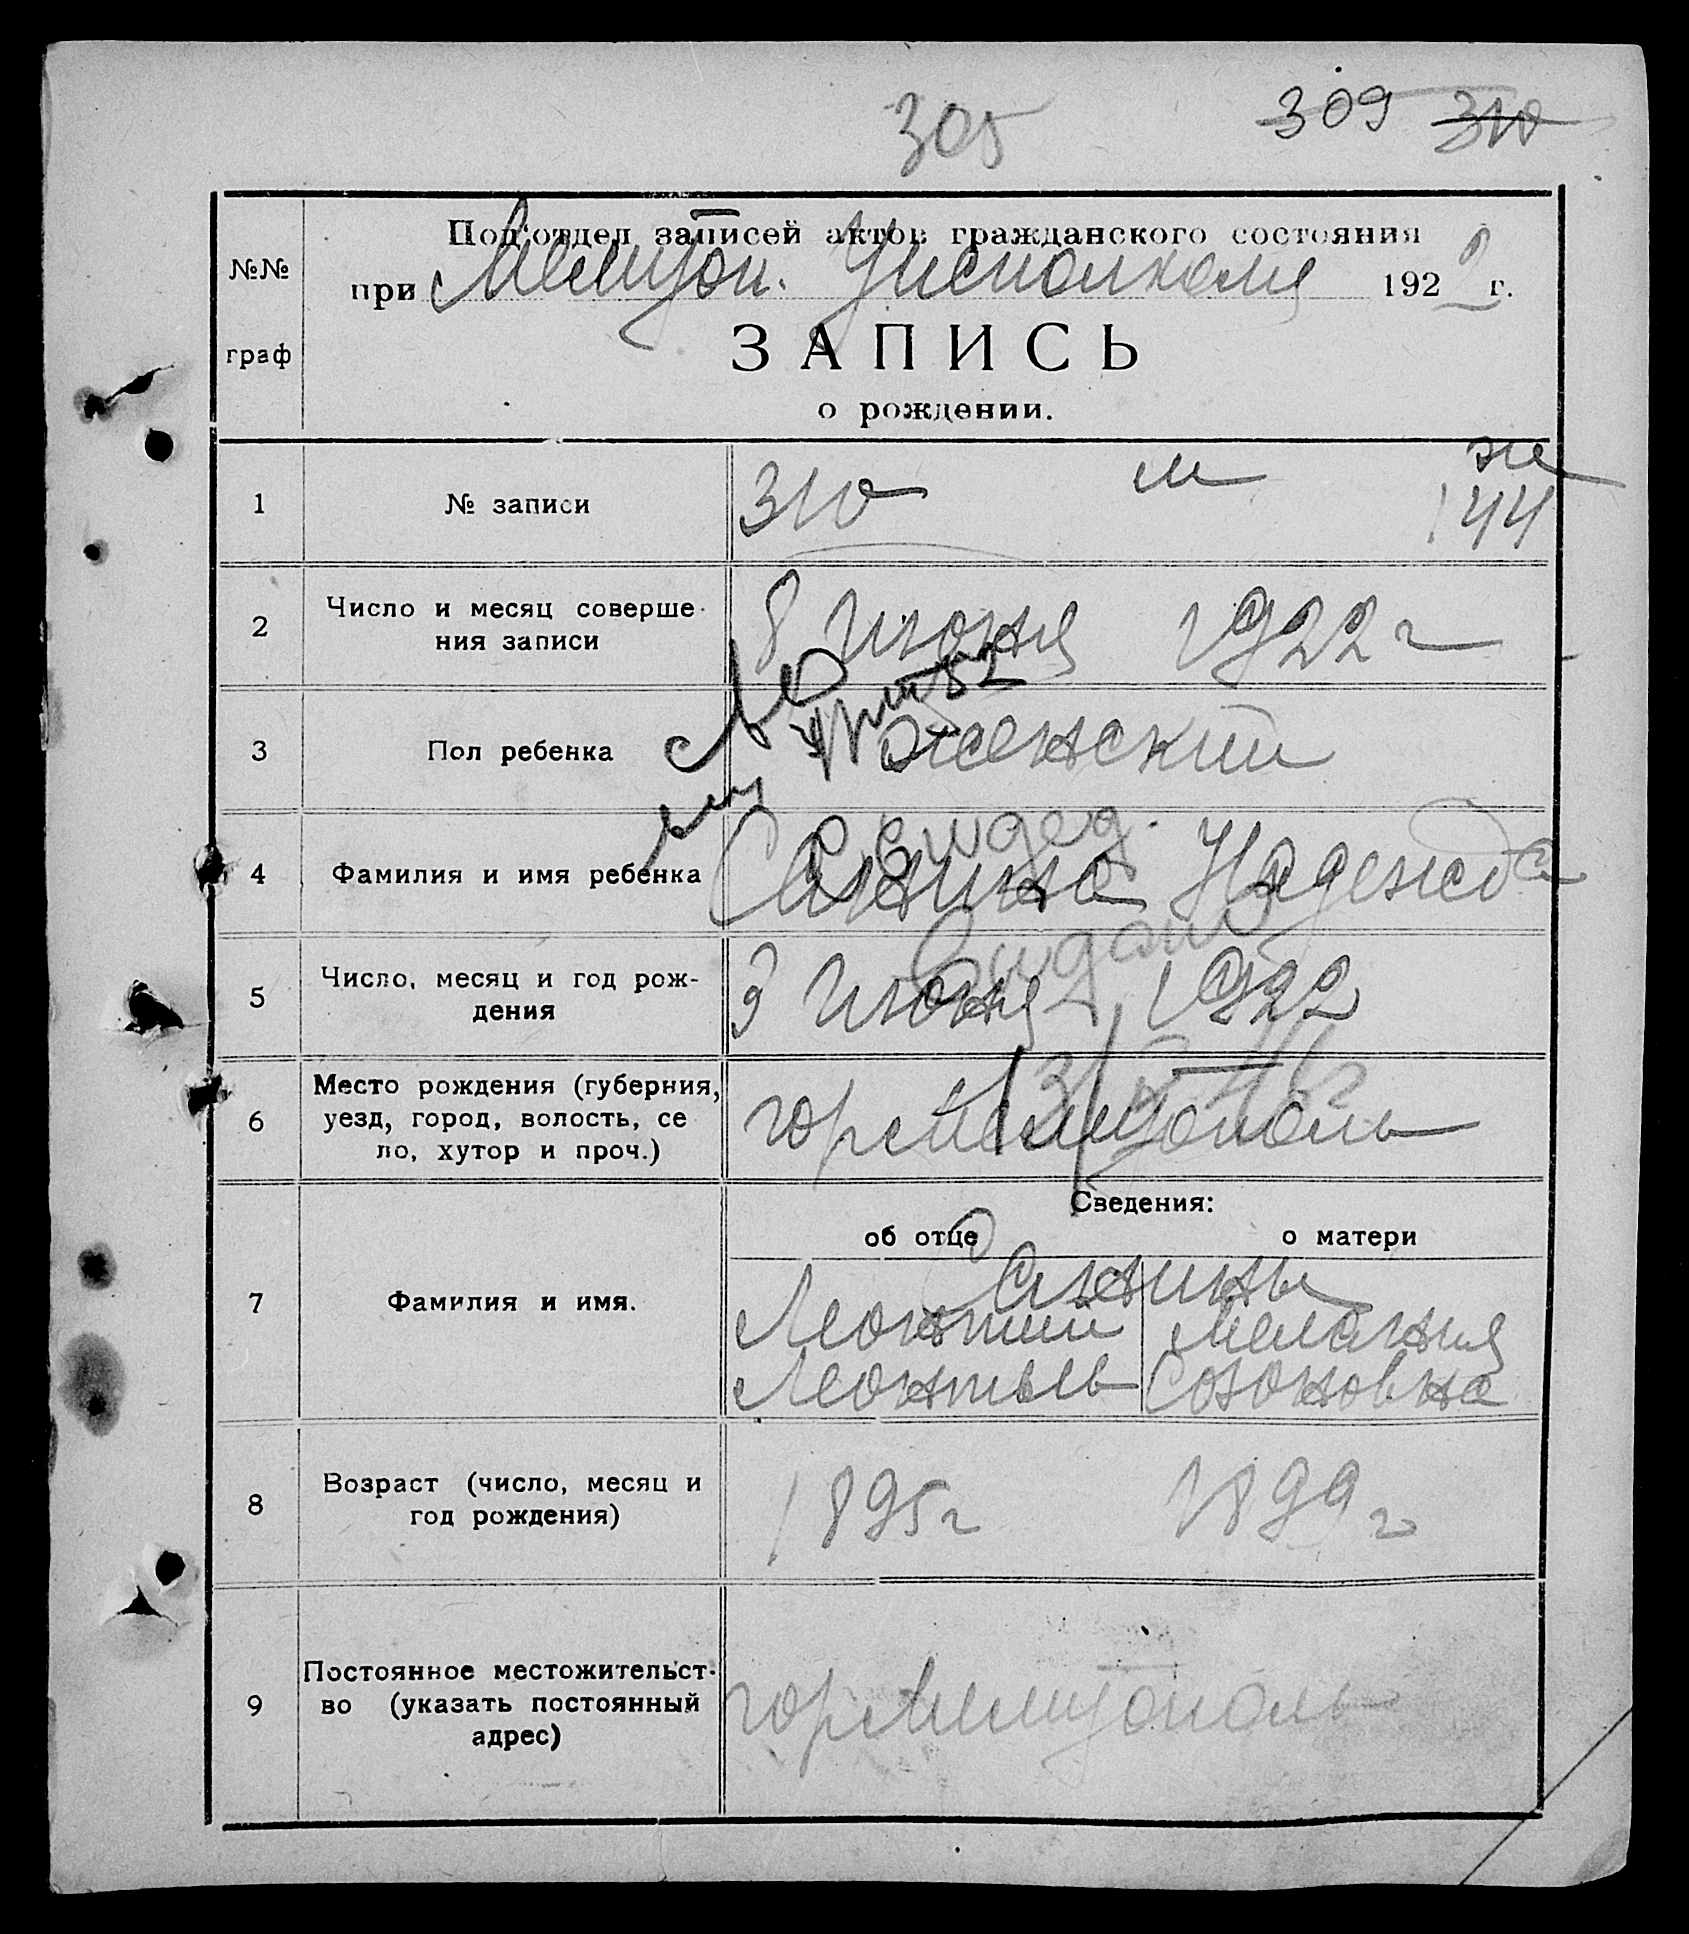 305 309 310
№№ граф
Под'отдел записей актов гражданского состояния
при Мелитоп. Уисполкома 1922 г.
ЗАПИСЬ
о рождении.
1 № записи 310 м ж
144
2 Число и месяц соверше-
ния записи 8 Июня 1922 г
3 Пол ребенка женский
4 Фамилия и имя ребенка Санина Надежда
5 Число, месяц и год рож-
дения 3 Июня 1922
6 Место рождения (губерния,
уезд, город, волость, се
ло, хутор и проч.) гор Мелитополь
Сведения:
об отце о матери
7 Фамилия и имя. Санины
Леонтий Мелания
Леонтьев Созоновна
8 Возраст (число, месяц и
год рождения) 1895 г 1899 г
9 Постоянное местожительст-
во (указать постоянный
адрес) гор Мелитополь